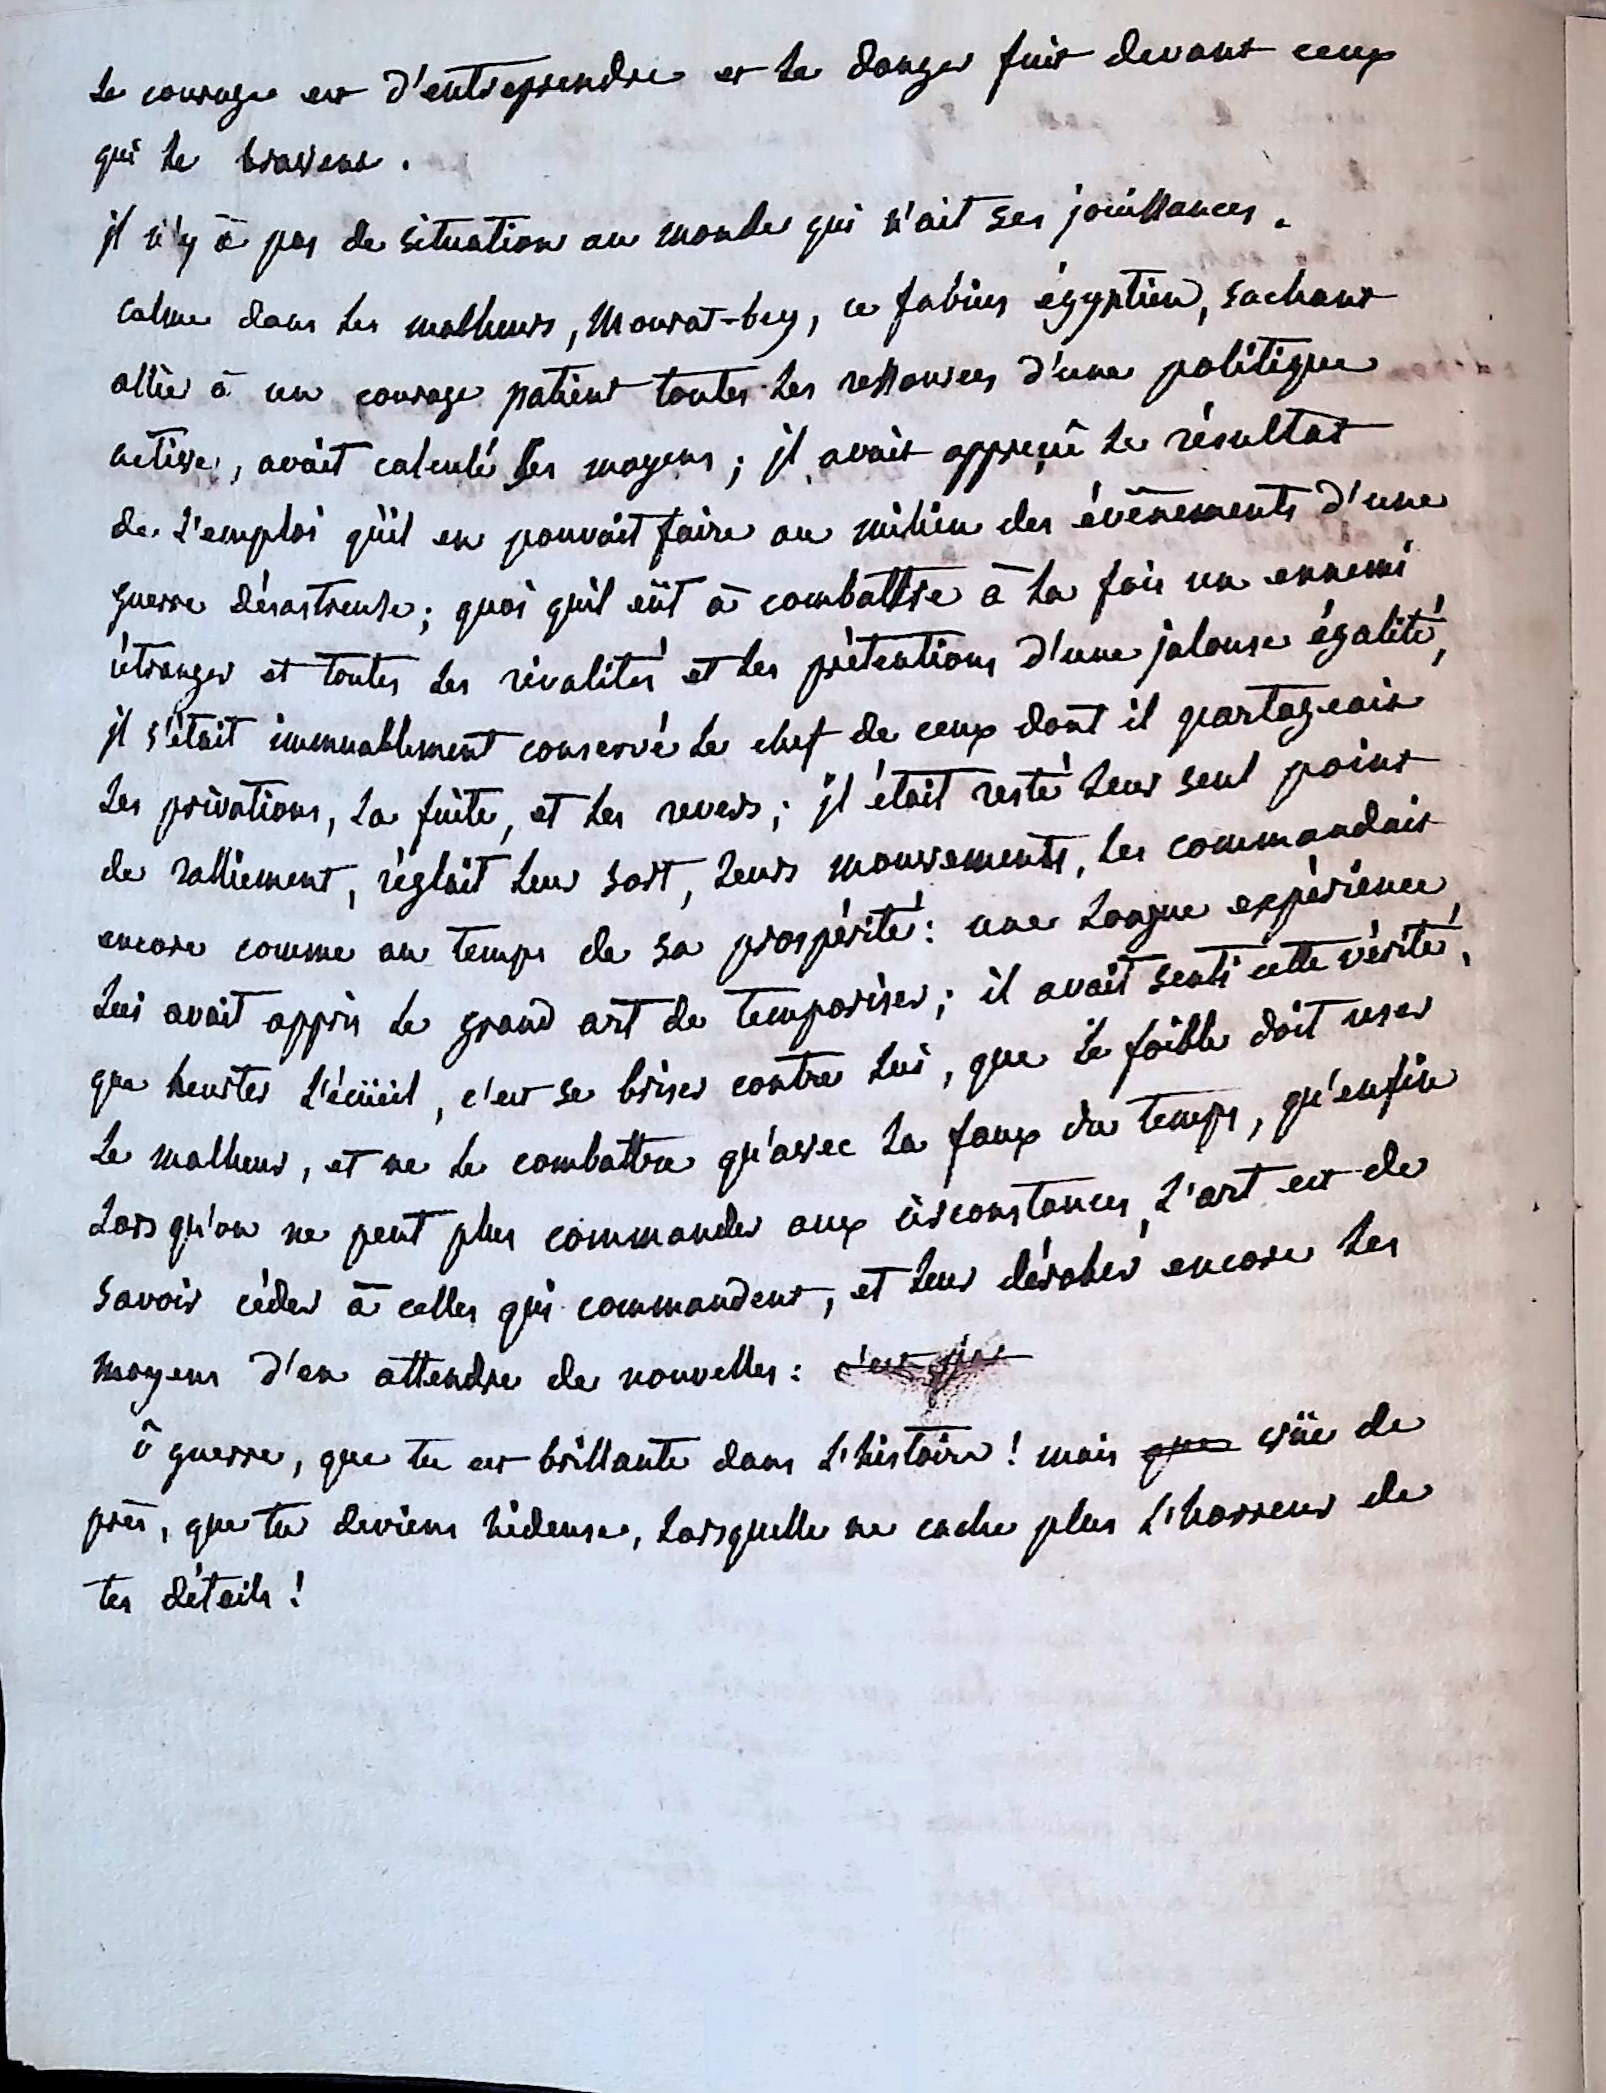 Le courage est d'entreprendre et le danger fuit devant ceux
qui le bravent.
il n'y à pas de situation au monde qui n'ait ses jouissances.
calme dans les malheurs, Mourat-bey, ce fabius égyptien, sachant
allier à un courage patient toutes les ressources d'une politique
active, avait calculé ses moyens; il avait appreçû le résultat
de l'emploi qu'il en pouvait faire au milieu des événements d'une
guerre désastreuse; quoi qu'il eût à combattre à la fois un ennemi
étranger et toutes les rivalités et les prétentions d'une jalouse égalité,
il s'était immuablement conservé le chef de ceux dont il partageait
les privations, la fuite, et les revers; il était resté leur seul point
de ralliement, réglait leur sort, leurs mouvements, les commandait
encore comme au temps de sa prospérité: une longue expérience
lui avait appris le grand art de temporiser; il avait senti cette vérité,
que heurter l'écüeil, c'est se briser contre lui, que le foible doit user
le malheur, et ne le combattre qu'avec la faux du temps, qu'enfin
lors qu'on ne peut plus commander aux circonstances, l'art est de
savoir céder à celles qui commandent, et leur dérober encore les
moyens d'en attendre de nouvelles: c'est
ô guerre, que tu es brillante dans l'histoire! mais que vüe de
près, que tu deviens hideuse, lorsquelle ne cache plus l'horreur de
tes détails!